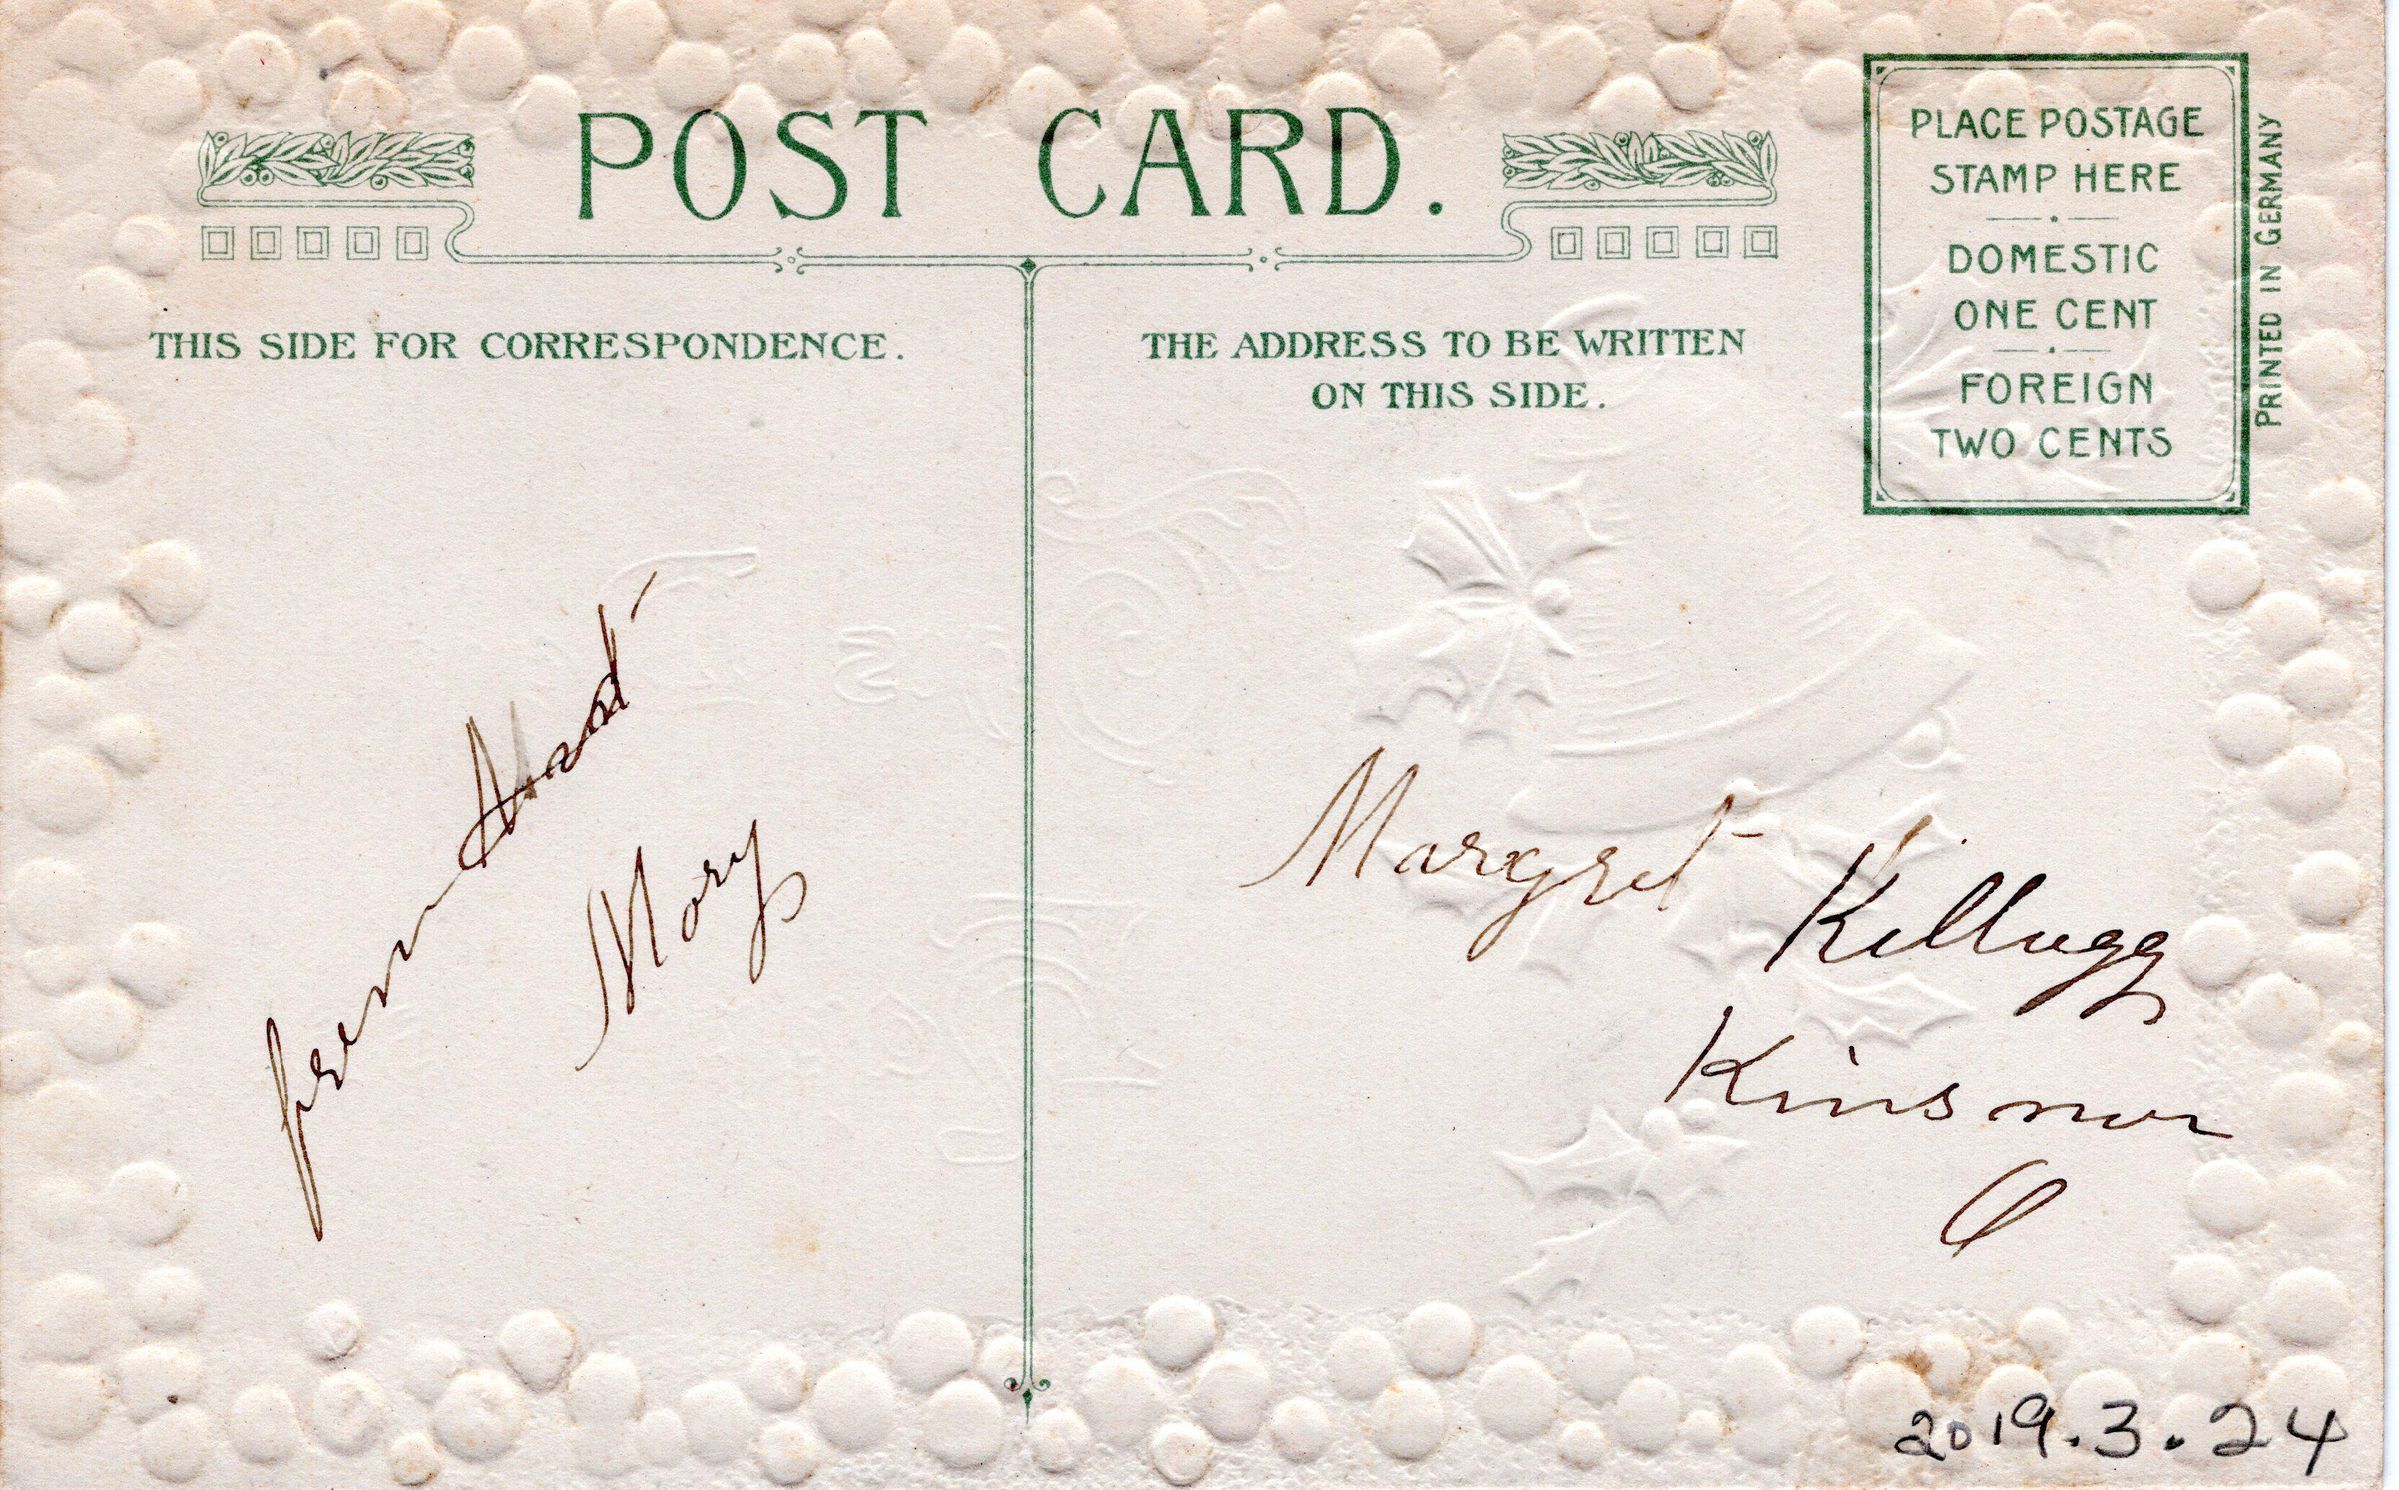 POST CARD.
THIS SIDE FOR CORRESPONDENCE.
THE ADDRESS TO BE WRITTEN
ON THIS SIDE.
PLACE POSTAGE
STAMP HERE
DOMESTIC
ONE CENT
FOREIGN
TWO CENTS
PRINTED IN GERMANY
from Aunt
Mary
Margret
Kellogg
Kinsman
O
2019.3.24